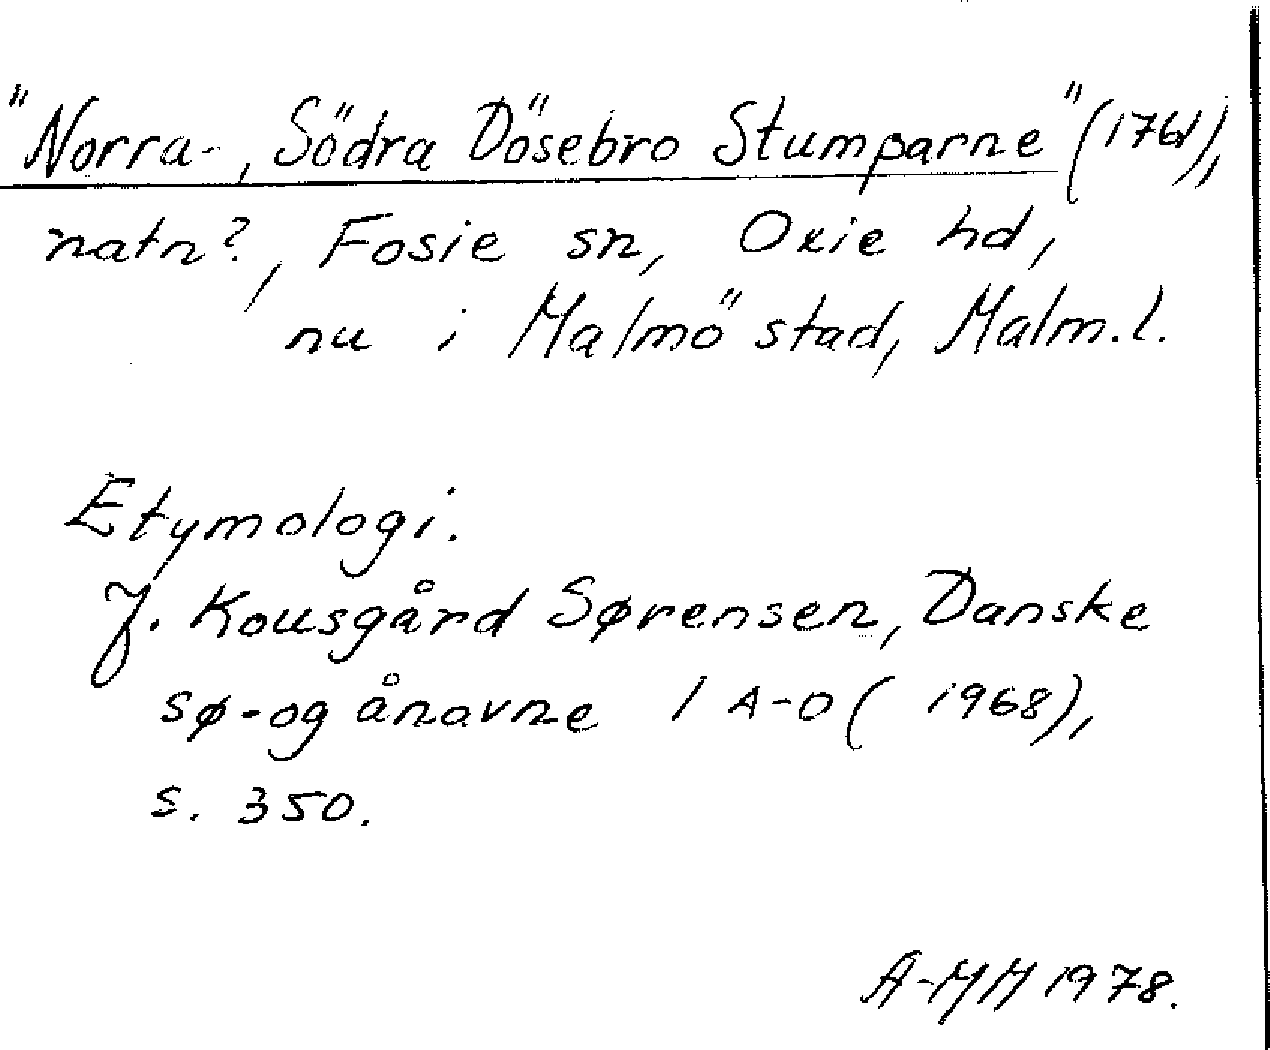 "Norra-, Södra Dösebro Stumparne" (1761),
natn?, Fosie sn, Oxie hd,
nu i Malmö stad, Malm.l.
Etymologi.
J. Kousgård Sørensen, Danske
sø- og ånavne 1 A-O (1968),
s. 350.
A-MM 1978.